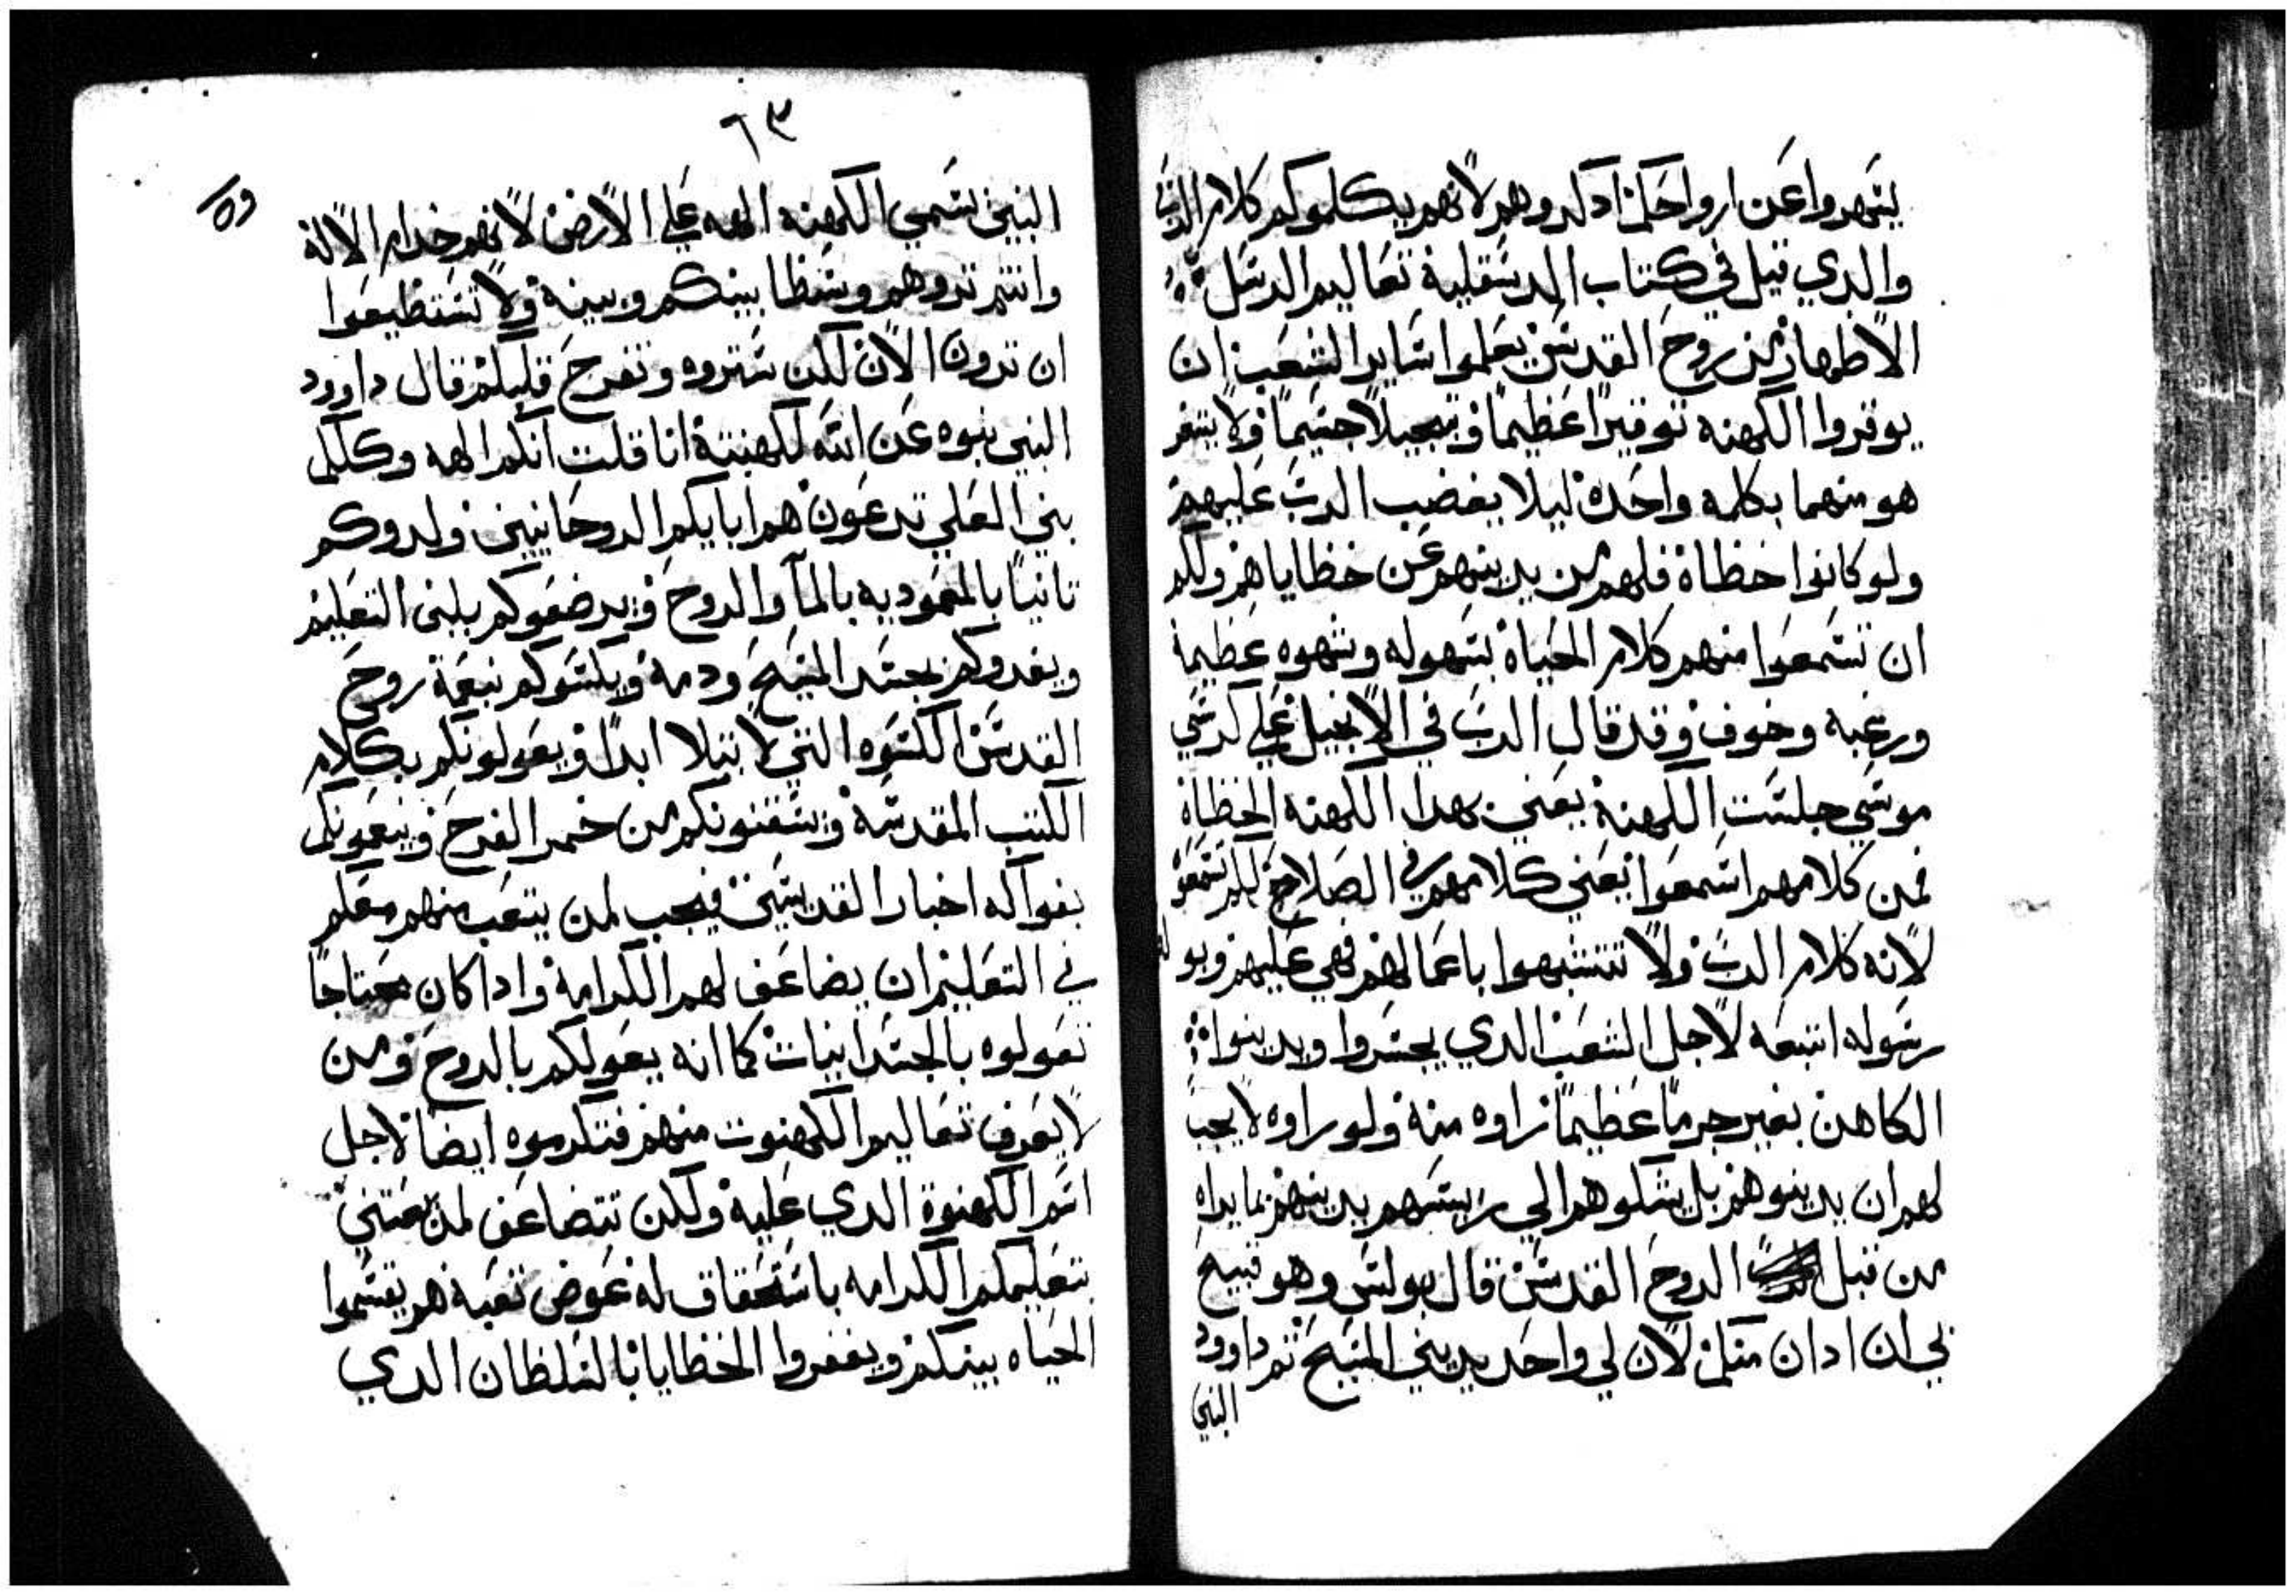 يسهروا عن ارواحكم ادكروهم لانهم يكلموكم كلام الرب
والدي قيل في كتاب الدسقلية تعاليم الرسل
الاطهار من روح القدس يعلموا ساير الشعب ان
يوقروا الكهنه توقيرا عظيما وتبجيلا جسيما ولا يتفر
هو منهما بكلمه واحدة ليلا يغضب الرب عليهم
ولو كانوا خطاة فلهم من يدينهم عن خطاياهم ولكم
ان تسمعوا منهم كلام الحياة بسهوله وشهوه عظيمة
ورغبه وخوف وقد قال الرب في الانجيل علي كرسي
موسي جلست الكهنة يعني بهدا الكهنه الخطاة
فمن كلامهم اسمعوا يعني كلامهم في الصلاح لكم تسمعو
لانه كلام الرب ولا تتشبهوا باعمالهم فهي عليهم وبو
رسوله اتبعه لاجل الشعب الدي يجسروا ويدينوا
الكاهن بغير جرما عظيما راوه منه ولو راوه لا يجب
لهم ان يدينوهم بل يشكوهم الي ريسهم يدينهم بما يراه
من قبل الروح القدس قال بولس وهو قبيح
بي ان ادان منكم لان لي واحد يدينني المسيح تم داوود
النبي
٦٣
٥٩
النبي يسمي الكهنه الهه علي الارض لانهم خدام الاله
وانتم تروهم وسطا بينكم وبينه ولا تستطيعوا
ان ترون الان لكن ستروه وتفرح قلبكم قال داوود
النبي بنوه عن انته لكهنتة انا قلت انكم الهه وكلكم
بني العلي تدعون هم ابايكم الروحانيين ولدوكم
تانيا بالمعموديه بالما والروح ويرضعوكم بلبن التعليم
ويغدوكم بجسد المسيح ودمه ويكسوكم نبعمة روح
القدس الكسوه التي لا تبلا ابدا ويعولونكم بكلام
الكتب المقدسة ويسقونكم من خمر الفرح وينعمونكم
بفواكه اخبار القديسين فيجب لمن يتعب منهم معكم
في التعليم ان يضاعف لهم الكرامة وادا كان محتاجا
تعولوه بالجسدانيات كما انه يعولكم بالروح ومن
لا يعرف تعاليم الكهنوت منهم فتكرموه ايضا لاجل
اسم الكهنوة الدي عليه ولكن تتضاعف لمن معتني
بتعليمكم الكرامه باستحقاق له عوض تعبه هم يقسموا
الحياه بينكم ويغفروا الخطايا بالسلطان الدي